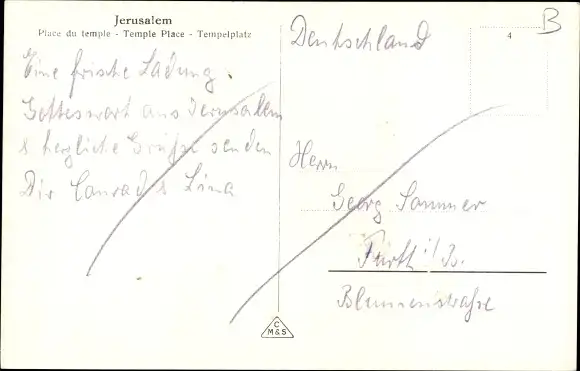 Jerusalem
Place du temple - Temple Place - Tempelplatz
Eine frische Ladung
Gotteswort aus Jerusalem
& herzliche Grüße senden
Dir Conrad & Lina
Deutschland
B
4
Herrn
Georg Sommer
Fürth i/B.
Blumenstraße
C
M&S